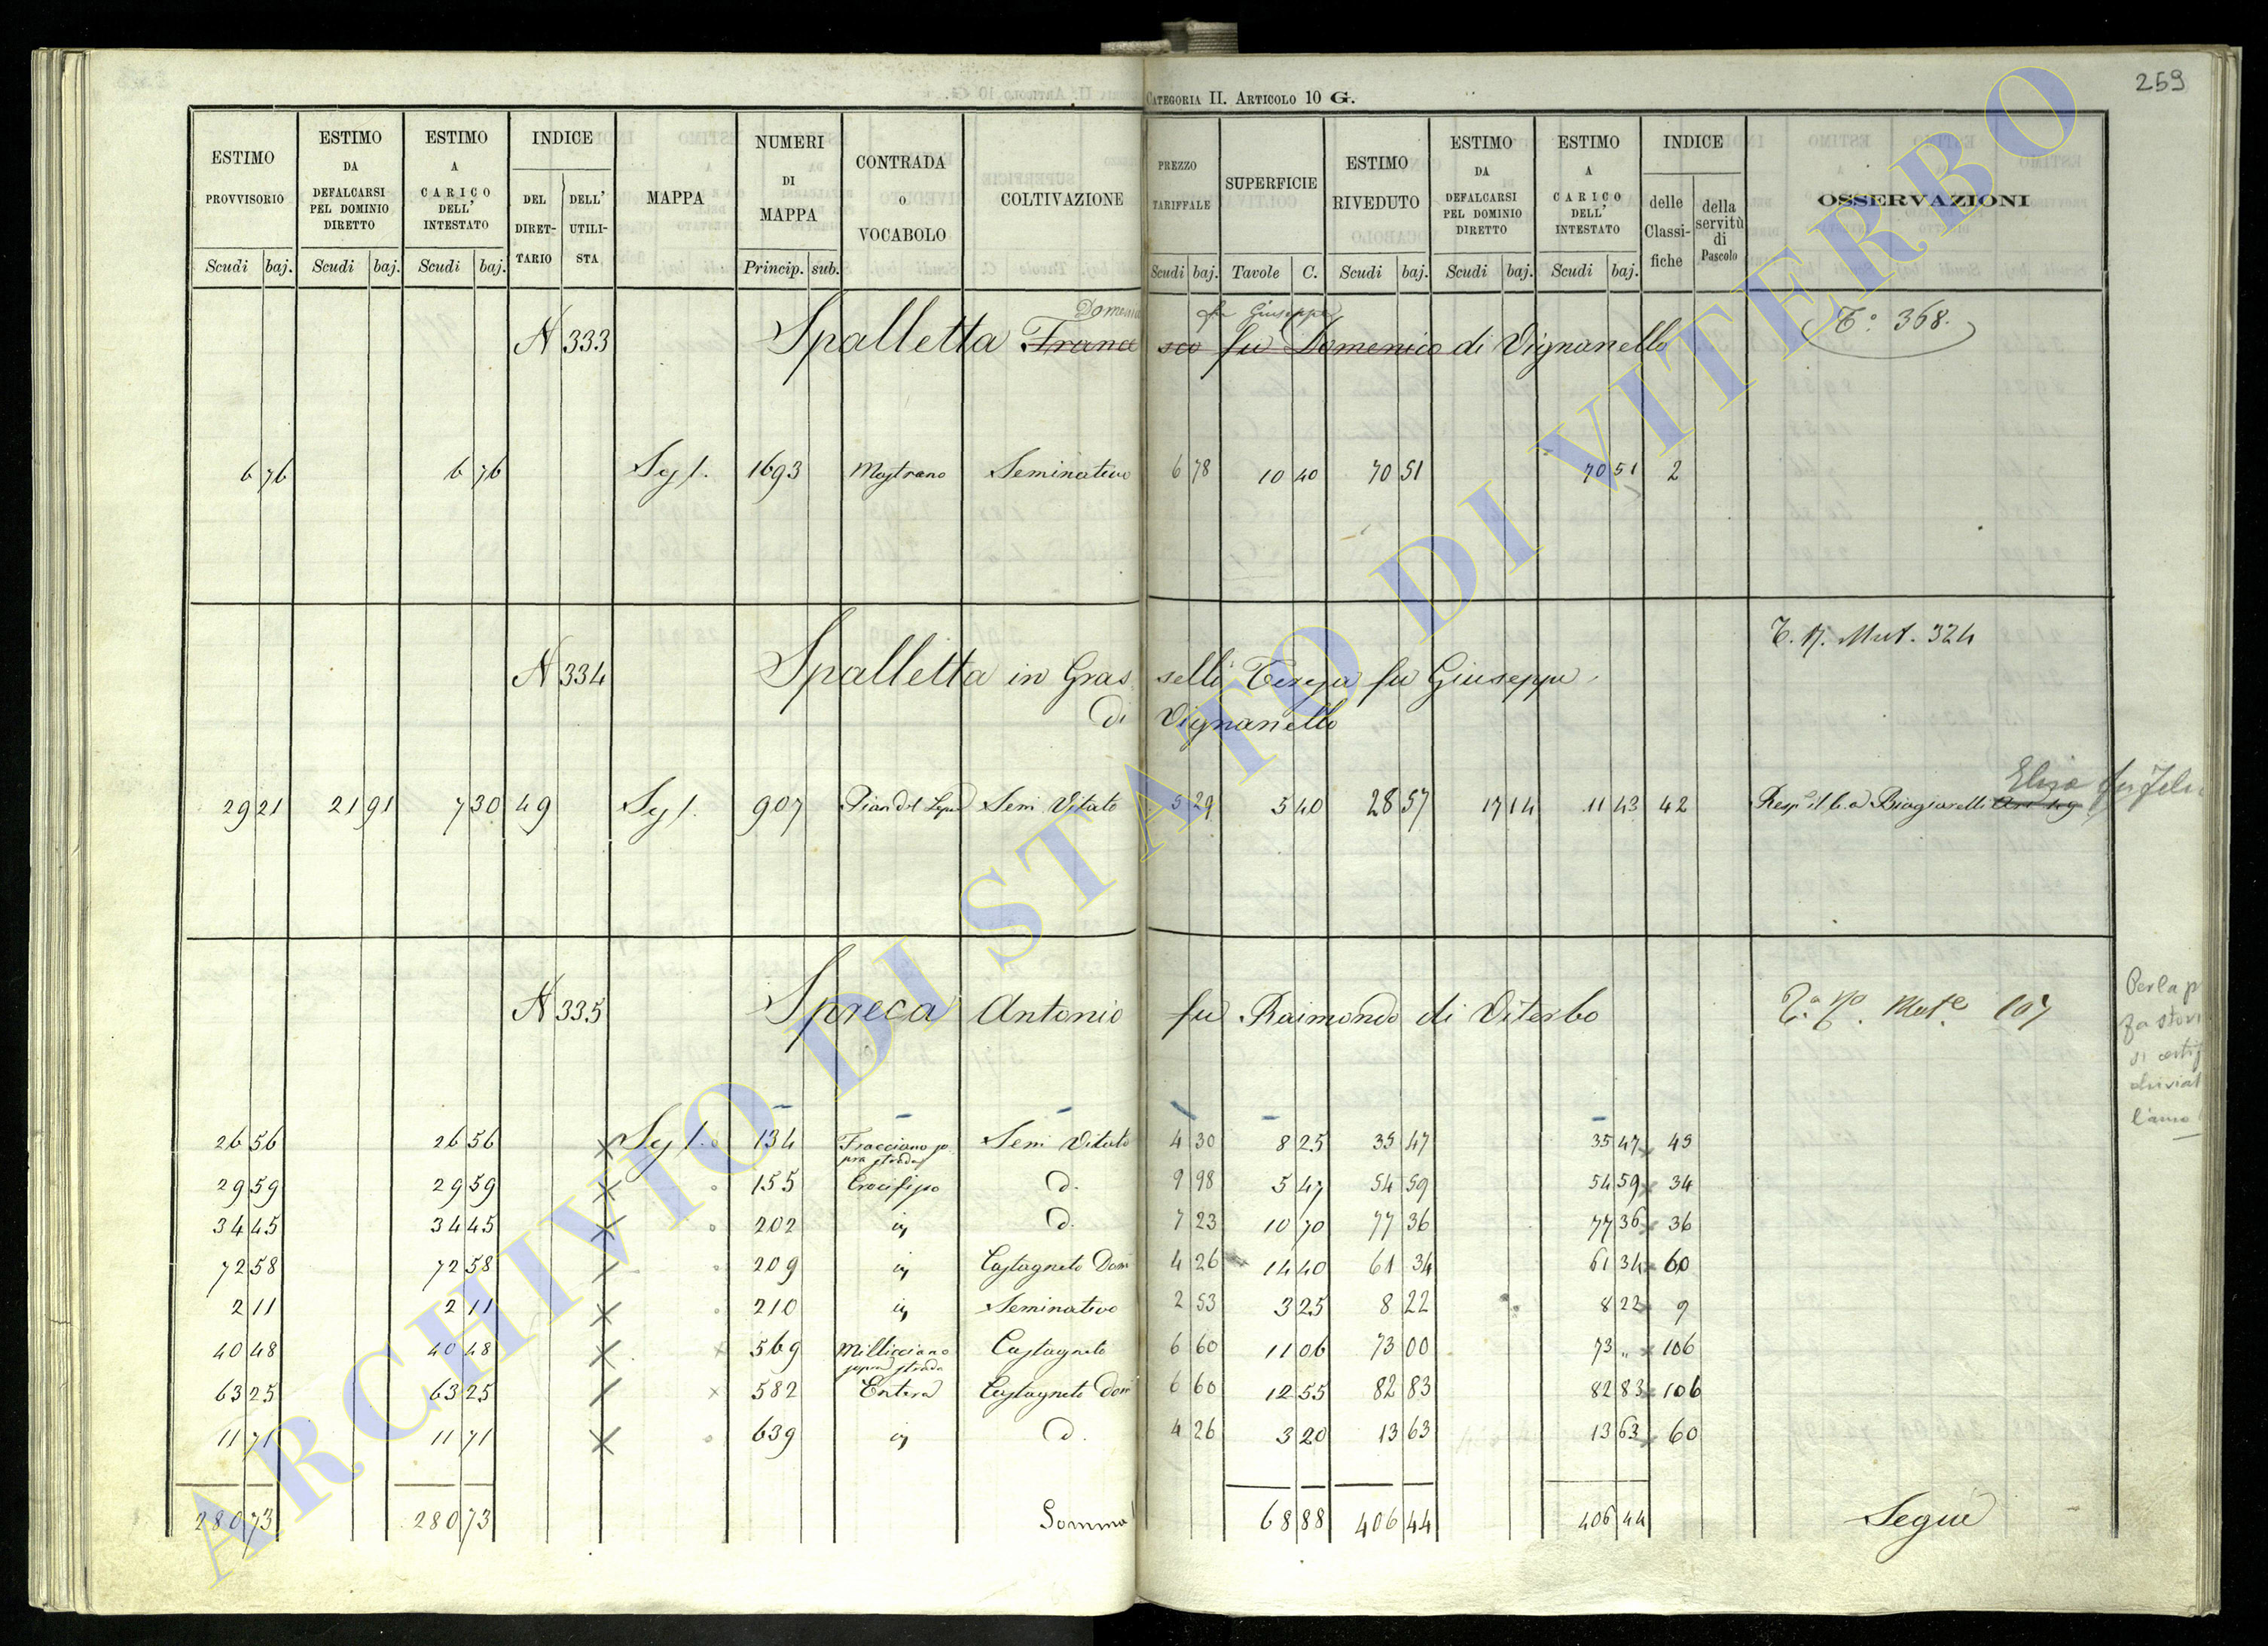 259
CATEGORIA II. ARTICOLO 10 G.
ESTIMO PROVVISORIO
ESTIMO DA DEFALCARSI PEL DOMINIO DIRETTO
ESTIMO A CARICO DELL' INTESTATO
INDICE
DEL DIRET- TARIO
DELL' UTILI- STA
MAPPA
NUMERI DI MAPPA
CONTRADA O VOCABOLO
COLTIVAZIONE
PREZZO TARIFFALE
SUPERFICIE
ESTIMO RIVEDUTO
ESTIMO DA DEFALCARSI PEL DOMINIO DIRETTO
ESTIMO A CARICO DELL' INTESTATO
INDICE
delle Classi- fiche
della servitù di Pascolo
OSSERVAZIONI
Scudi baj. Scudi baj. Scudi baj. Princip. sub. Scudi baj. Tavole C. Scudi baj. Scudi baj. Scudi baj.
fu Giuseppe
N 333 Spalletta Francesco fu Domenico di Vignanello T.º 368.
6 76 6 76 Sez 1. 1693 Mastrano Seminativo 6 78 10 40 70 51 70 51 2
T. N. Mut. 324
N 334 Spalletta in Gras selli Teresa fu Giuseppe
di Vignanello
Elisa
29 21 21 91 7 30 49 Sez 1. 907 Seni Vitato 5 29 5 40 28 57 17 14 11 43 42 Biagiarelli
N 335 Spreca Antonio fu Raimondo di Viterbo 107
26 56 26 56 Sez 1. 134 Seni Vitato 4 30 8 25 35 47 35 47 45
pra strada
29 59 29 59 155 Crocifisso d. 9 98 5 47 54 59 54 59 34
34 45 34 45 202 d. 7 23 10 70 77 36 77 36 36
72 58 72 58 209 Castagneto Dom 4 26 14 40 61 34 61 34 60
2 11 2 11 210 Seminativo 2 53 3 25 8 22 8 22 9
40 48 40 48 569 Millicciano Castagneto 6 60 11 06 73 00 73 " 106
sopra strada
63 25 63 25 582 Entera Castagneto Dom 6 60 12 55 82 83 82 83 106
11 71 11 71 639 d. 4 26 3 20 13 63 13 63 60
280 73 280 73 Somma 68 88 406 44 406 44 Segue
ARCHIVIO DI STATO DI VITERBO